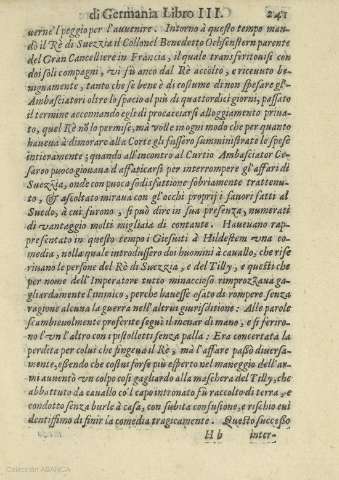 di Germania Libro III. 241
uerne'l peggio per l'auuenire. Intorno à questo tempo man-
dò il Rè di Suezzia il Collonel Benedetto Ochsenstern parente
del Gran Cancelliere in Francia, il quale transferitouisi con
doi soli compagni, vi fù anco dal Rè accolto, e riceuuto be-
nignamente, tanto che se bene è di costume di non spesare gl'
Ambasciatori oltre lo spatio al più di quattordici giorni, passato
il termine accennando egli di procacciarsi alloggiamento priua-
to, quel Rè nò lo permise, mà volle in ogni modo che per quanto
haueua à dimorare alla Corte gli fussero sumministrate le spese
intieramente; quando all'incontro al Curtio Ambasciator Ce-
sareo poco giouana d'affaticarsi per interrompere gl'affari di
Suezzia, onde con poca sodisfattione sobriamente trattenu-
to, & ascoltato miraua con gl'occhi proprij i fauori fatti al
Suedo, à cui furono, si può dire in sua presenza, numerati
di vantaggio molti migliaia di contante. Haueuano rap-
presentato in questo tempo i Giesuiti à Hildestem vna co-
media, nella quale introdussero doi huomini à cauallo, che rife
riuano le persone del Rè di Suezzia, e del Tilly, e questi che
per nome dell'Imperatore tutto minaccioso rimprozzaua ga-
gliardamente l'inimico, perche hauesse osato di rompere senza
ragione alcuna la guerra nell'altrui giurisditione: Alle parole
scambieuolmente proferite seguì il menar di mano, e si feriro-
no l'vn l'altro con i pistolletti senza palla: Era concertata la
perdita per colui che fingeua il Rè, mà l'affare passò diuersa-
mente, essendo che costui forse più esperto nel maneggio dell'ar-
mi auuentò vn colpo così gagliardo alla maschera del Tilly, che
abbattuto da cauallo co'l capo intronato fù raccolto di terra, e
condotto senza burle à casa, con subita confusione, e rischio eui
dentissimo di finir la comedia tragicamente. Questo successo
H h inter-
Colección ABANCA